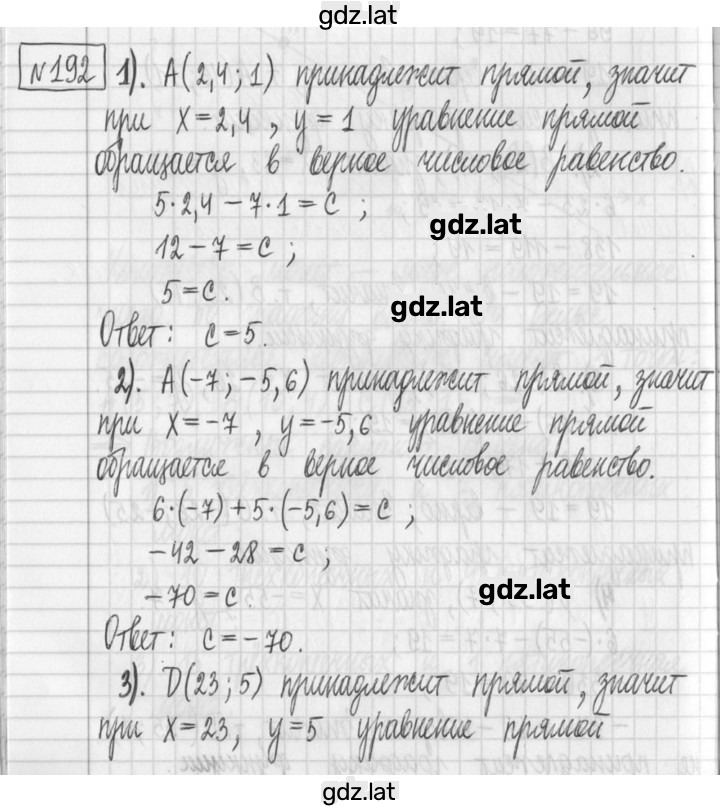 gdz.lat
№192 1). А(2,4; 1) принадлежит прямой, значит
при x=2,4, y=1 уравнение прямой
обращается в верное числовое равенство.
5·2,4-7·1=c;
gdz.lat
12-7=c;
5=c.
gdz.lat
Ответ: c=5.
2). А(-7; -5,6) принадлежит прямой, значит
при x=-7, y=-5,6 уравнение прямой
обращается в верное числовое равенство.
6·(-7)+5·(-5,6)=c;
-42-28=c;
-70=c.
gdz.lat
Ответ: c=-70.
3). D(23; 5) принадлежит прямой, значит
при x=23, y=5 уравнение прямой
gdz.lat